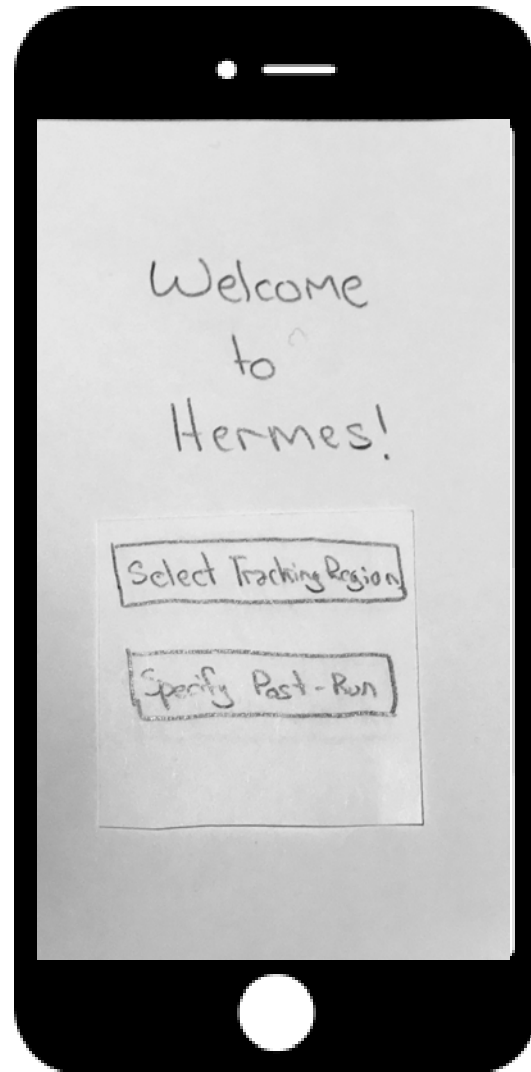 Welcome
to
Hermes!
Select Tracking Region
Specify Post-Run